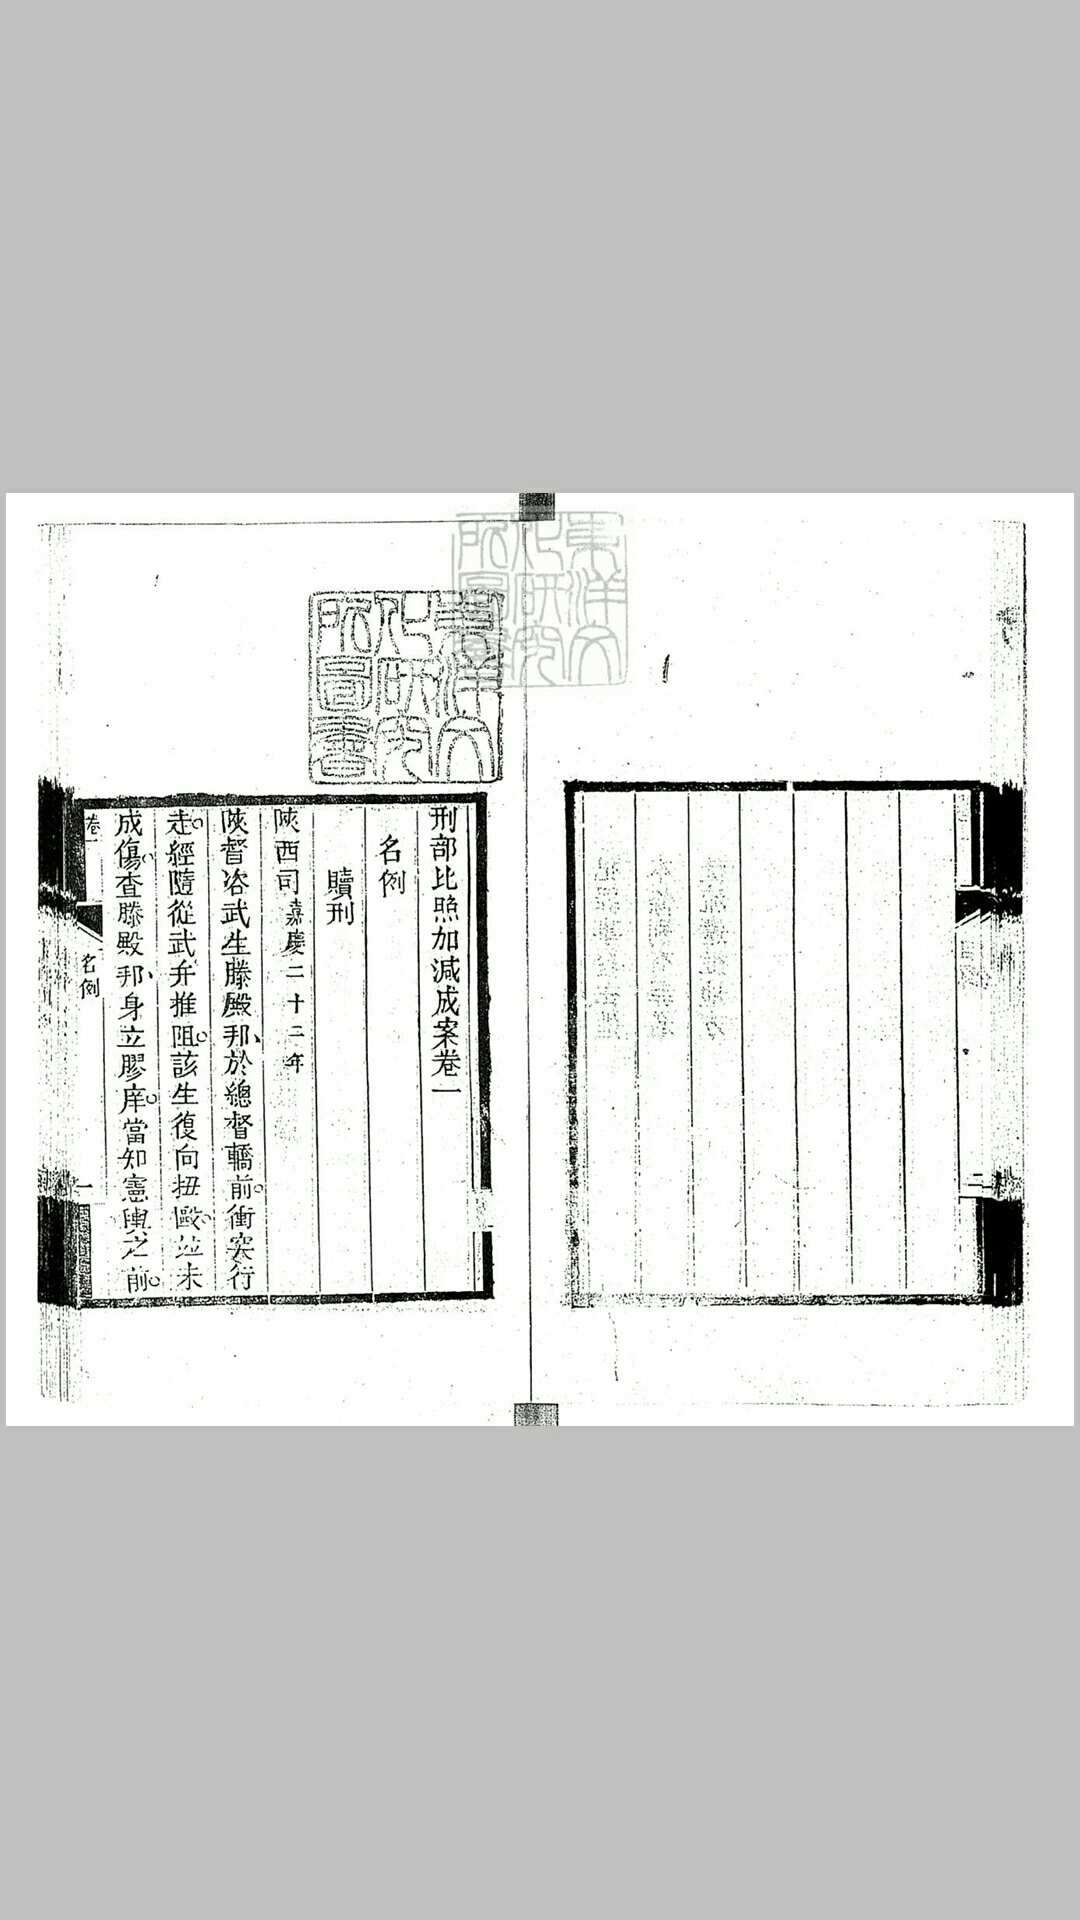 東洋文
化研究
所圖書
東洋文
化研究
所圖書
二
刑部比照加減成案卷一
名例
贖刑
陝西司嘉慶二十二年
陝督咨武生滕殿邦、於總督轎前。衝突行
走。經隨從武弁推阻。該生復向扭毆。並未
成傷。查滕殿邦、身立膠庠。當知憲輿之前。
卷一
名例
一